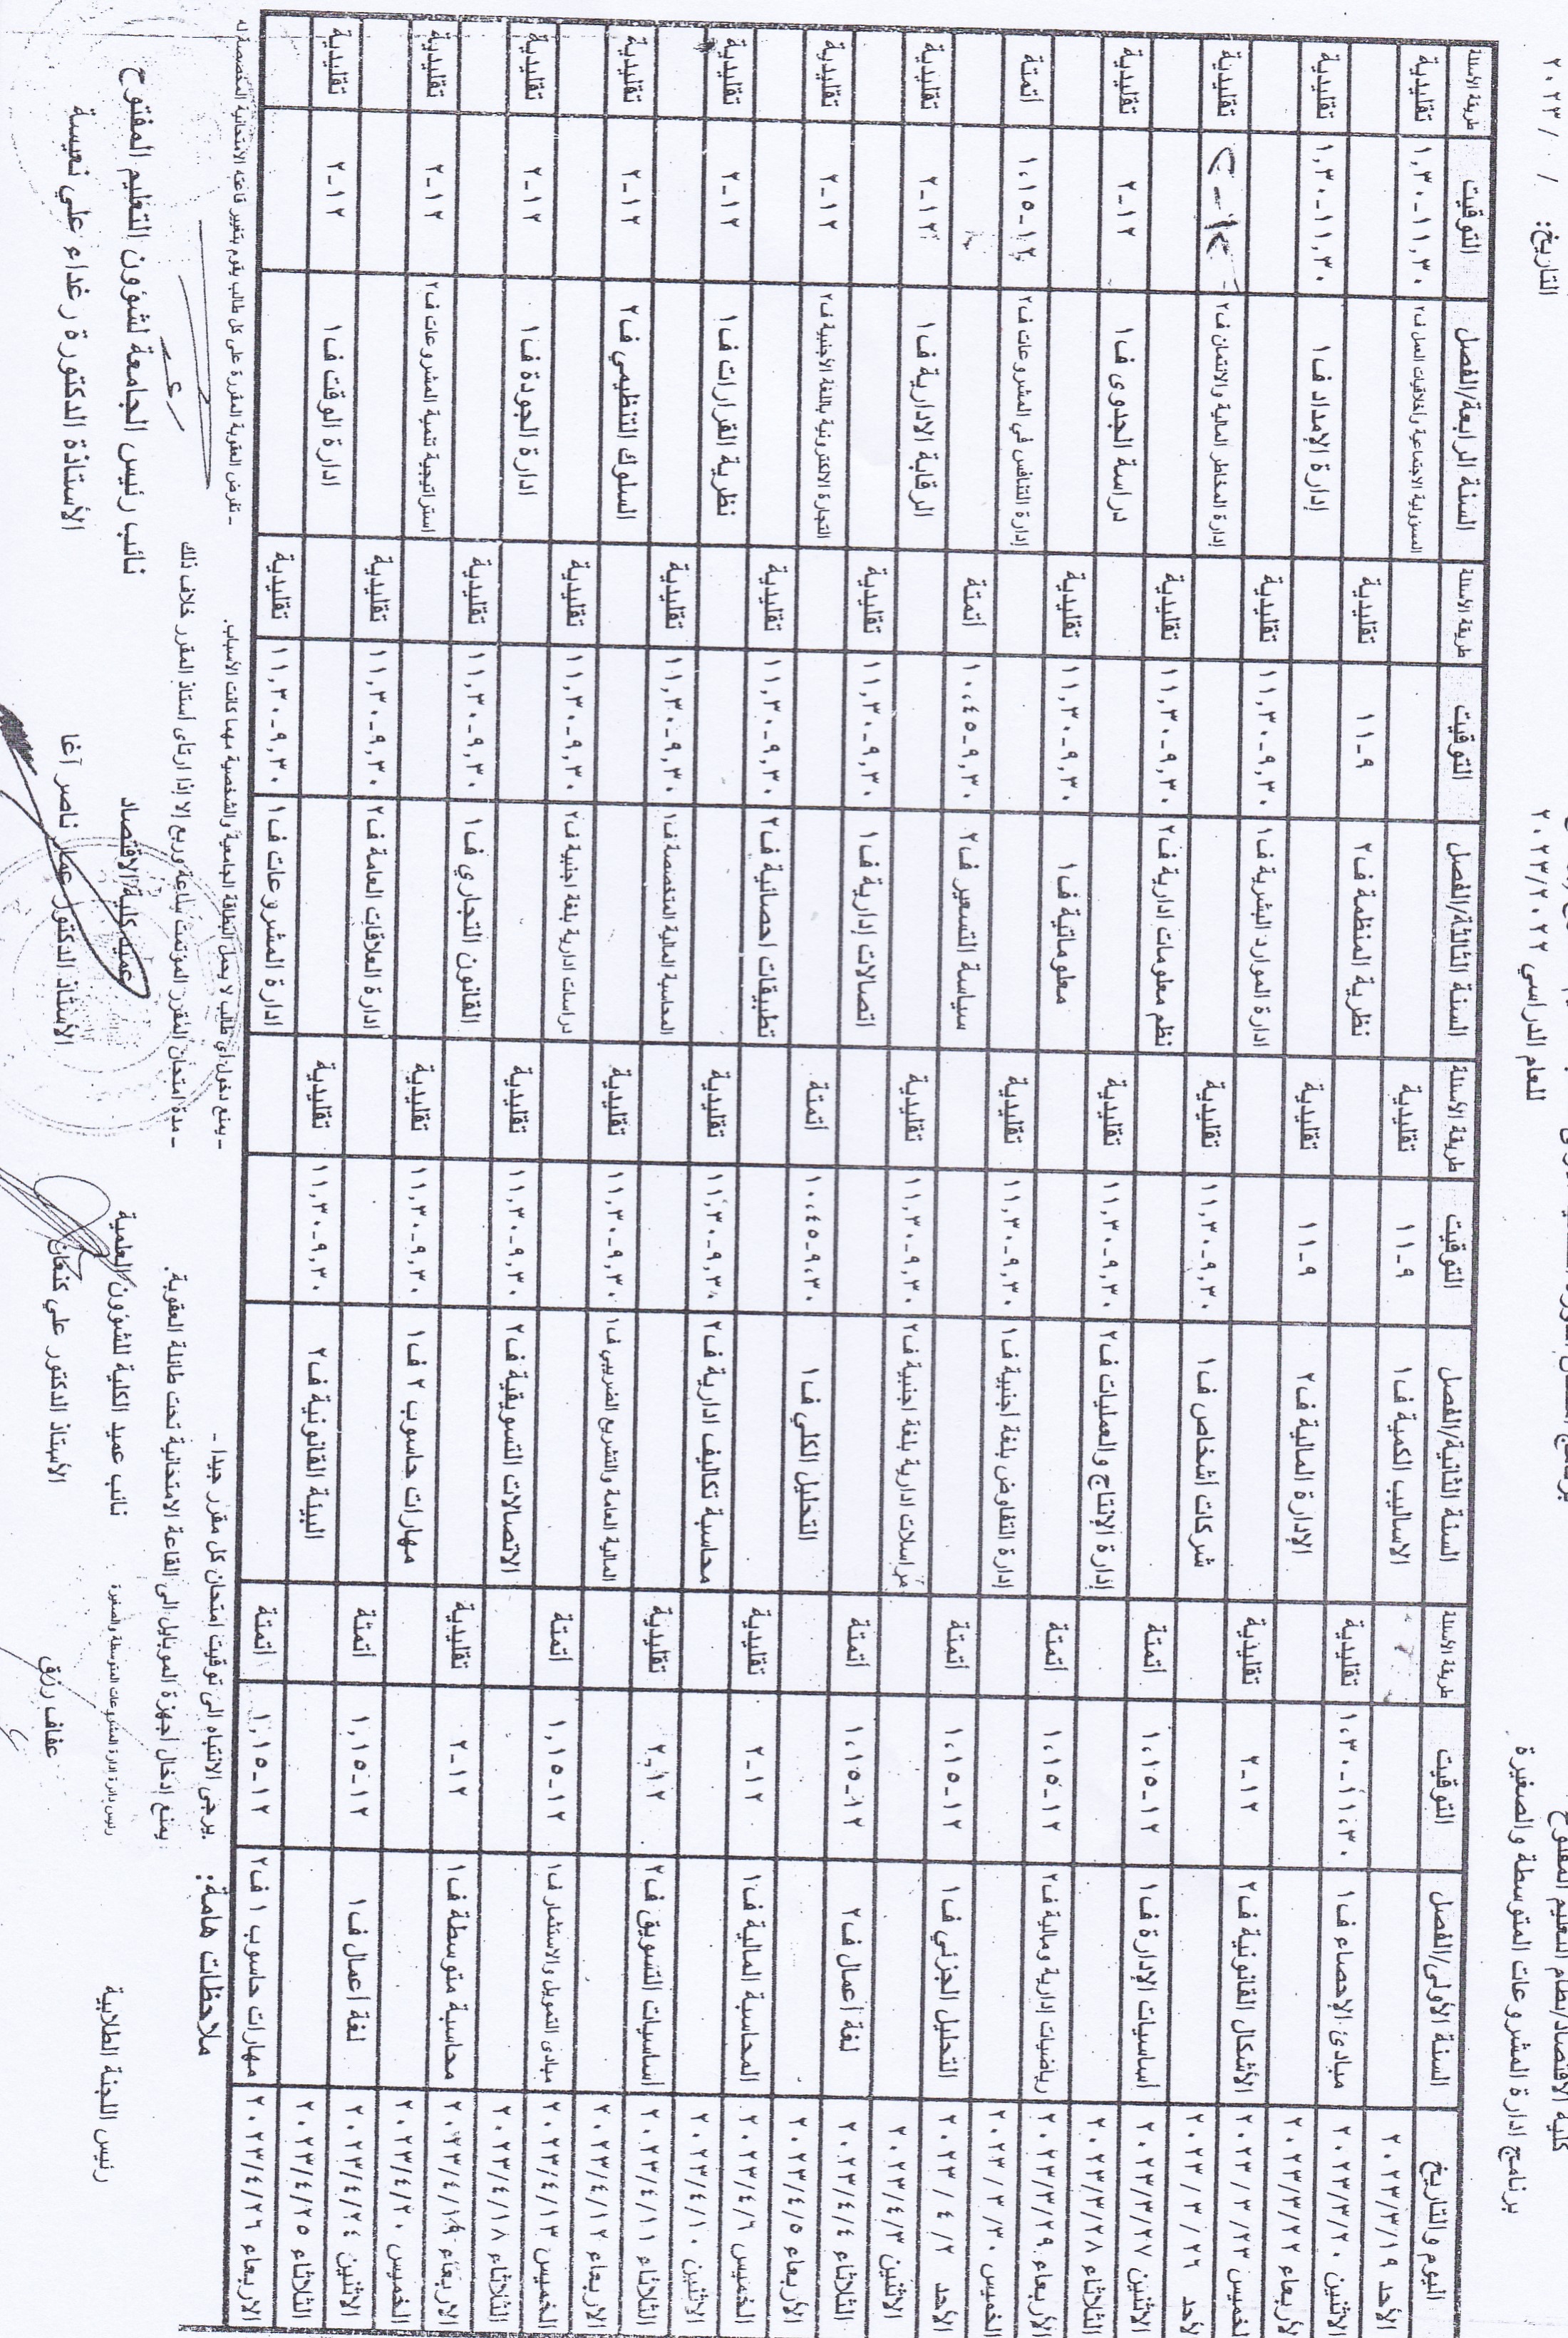 برنامج ادارة المشروعات المتوسطة والصغيرة للعام الدراسي ٢٠٢٣/٢٠٢٢ التاريخ: / / ٢٠٢٣
اليوم والتاريخ السنة الأولى/الفصل التوقيت طريقة الأسئلة السنة الثانية/الفصل التوقيت طريقة الأسئلة السنة الثالثة/الفصل التوقيت طريقة الأسئلة السنة الرابعة/الفصل التوقيت طريقة الأسئلة
الأحد ٢٠٢٣/٣/١٩ الاساليب الكمية ف١ ٩-١١ تقليدية المسؤولية الاجتماعية واخلاقيات العمل ف٢ ١١,٣٠-١,٣٠ تقليدية
الاثنين ٢٠٢٣/٣/٢٠ مبادئ الإحصاء ف١ ١١,٣٠-١,٣٠ تقليدية نظرية المنظمة ف٢ ٩-١١ تقليدية
الأربعاء ٢٠٢٣/٣/٢٢ الإدارة المالية ف٢ ٩-١١ تقليدية إدارة الإمداد ف١ ١١,٣٠-١,٣٠ تقليدية
الخميس ٢٠٢٣/٣/٢٣ الأشكال القانونية ف٢ ١٢-٢ تقليدية ادارة الموارد البشرية ف١ ٩,٣٠-١١,٣٠ تقليدية
الأحد ٢٠٢٣/٣/٢٦ شركات أشخاص ف١ ٩,٣٠-١١,٣٠ تقليدية إدارة المخاطر المالية والائتمان ف٢ ١٢-٢ تقليدية
الاثنين ٢٠٢٣/٣/٢٧ أساسيات الإدارة ف١ ١٢-١,١٥ أتمتة نظم معلومات إدارية ف٢ ٩,٣٠-١١,٣٠ تقليدية
الثلاثاء ٢٠٢٣/٣/٢٨ إدارة الإنتاج والعمليات ف٢ ٩,٣٠-١١,٣٠ تقليدية دراسة الجدوى ف١ ١٢-٢ تقليدية
الأربعاء ٢٠٢٣/٣/٢٩ رياضيات إدارية ومالية ف٢ ١٢-١,١٥ أتمتة معلوماتية ف١ ٩,٣٠-١١,٣٠ تقليدية
الخميس ٢٠٢٣/٣/٣٠ إدارة التفاوض بلغة اجنبية ف١ ٩,٣٠-١١,٣٠ تقليدية إدارة التنافس في المشروعات ف٢ ١٢-١,١٥ أتمتة
الأحد ٢٠٢٣/٤/٢ التحليل الجزئي ف١ ١٢-١,١٥ أتمتة سياسة التسعير ف٢ ٩,٣٠-١٠,٤٥ أتمتة
الاثنين ٢٠٢٣/٤/٣ مراسلات ادارية بلغة اجنبية ف٢ ٩,٣٠-١١,٣٠ تقليدية الرقابة الادارية ف١ ١٢-٢ تقليدية
الثلاثاء ٢٠٢٣/٤/٤ لغة أعمال ف٢ ١٢-١,١٥ أتمتة اتصالات إدارية ف١ ٩,٣٠-١١,٣٠ تقليدية
الأربعاء ٢٠٢٣/٤/٥ التحليل الكلي ف١ ٩,٣٠-١٠,٤٥ أتمتة التجارة الالكترونية باللغة الأجنبية ف٢ ١٢-٢ تقليدية
الخميس ٢٠٢٣/٤/٦ المحاسبة المالية ف١ ١٢-٢ تقليدية تطبيقات احصائية ف٢ ٩,٣٠-١١,٣٠ تقليدية
الاثنين ٢٠٢٣/٤/١٠ محاسبة تكاليف ادارية ف٢ ٩,٣٠-١١,٣٠ تقليدية نظرية القرارات ف١ ١٢-٢ تقليدية
الثلاثاء ٢٠٢٣/٤/١١ أساسيات التسويق ف٢ ١٢-٢ تقليدية المحاسبة المالية المتخصصة ف١ ٩,٣٠-١١,٣٠ تقليدية
الاربعاء ٢٠٢٣/٤/١٢ المالية العامة والتشريع الضريبي ف١ ٩,٣٠-١١,٣٠ تقليدية السلوك التنظيمي ف٢ ١٢-٢ تقليدية
الخميس ٢٠٢٣/٤/١٣ مبادئ التمويل والاستثمار ف١ ١٢-١,١٥ أتمتة دراسات ادارية بلغة اجنبية ف٢ ٩,٣٠-١١,٣٠ تقليدية
الثلاثاء ٢٠٢٣/٤/١٨ الاتصالات التسويقية ف٢ ٩,٣٠-١١,٣٠ تقليدية ادارة الجودة ف١ ١٢-٢ تقليدية
الاربعاء ٢٠٢٣/٤/١٩ محاسبة متوسطة ف١ ١٢-٢ تقليدية القانون التجاري ف١ ٩,٣٠-١١,٣٠ تقليدية
الخميس ٢٠٢٣/٤/٢٠ مهارات حاسوب ٢ ف١ ٩,٣٠-١١,٣٠ تقليدية استراتيجية تنمية المشروعات ف٢ ١٢-٢ تقليدية
الاثنين ٢٠٢٣/٤/٢٤ لغة أعمال ف١ ١٢-١,١٥ أتمتة ادارة العلاقات العامة ف٢ ٩,٣٠-١١,٣٠ تقليدية
الثلاثاء ٢٠٢٣/٤/٢٥ البيئة القانونية ف٢ ٩,٣٠-١١,٣٠ تقليدية ادارة الوقت ف١ ١٢-٢ تقليدية
الاربعاء ٢٠٢٣/٤/٢٦ مهارات حاسوب ١ ف٢ ١٢-١,١٥ أتمتة ادارة المشروعات ف١ ٩,٣٠-١١,٣٠ تقليدية
ملاحظات هامة: يرجى الانتباه الى توقيت امتحان كل مقرر جيدا - - يمنع دخول أي طالب لا يحمل البطاقة الجامعية والشخصية مهما كانت الأسباب. - تفرض العقوبة المقررة على كل طالب يقوم بتغيير قاعته الامتحانية المخصصة له
يمنع إدخال أجهزة الموبايل الى القاعة الامتحانية تحت طائلة العقوبة. - مدة امتحان المقرر المؤتمت ساعة وربع إلا إذا ارتأى أستاذ المقرر خلاف ذلك
رئيس اللجنة الطلابية رئيس دائرة ادارة المشروعات المتوسطة والصغيرة نائب عميد الكلية للشؤون العلمية عميد كلية الاقتصاد نائب رئيس الجامعة لشؤون التعليم المفتوح
عفاف رزق الأستاذ الدكتور علي كنعان الأستاذ الدكتور عمار ناصر آغا الأستاذة الدكتورة رغداء علي نعيسة